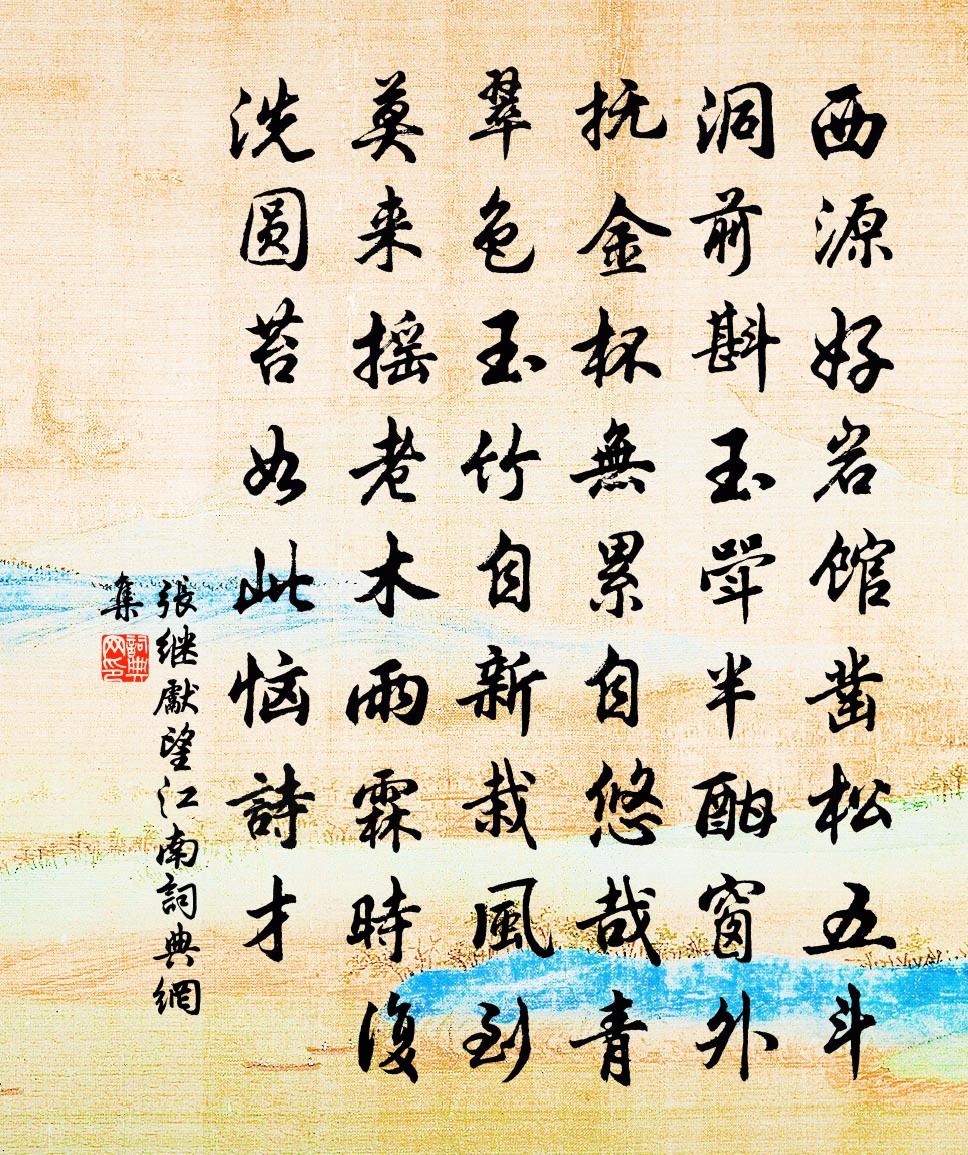 西源好岩馆凿松五斗
洞前斟玉斝半酣窗外
抚金杯無累自悠哉青
翠色玉竹自新栽風到
莫来摇老木雨霖時復
洗圆苔如此恼詩才
張继獻望江南詞典網
集